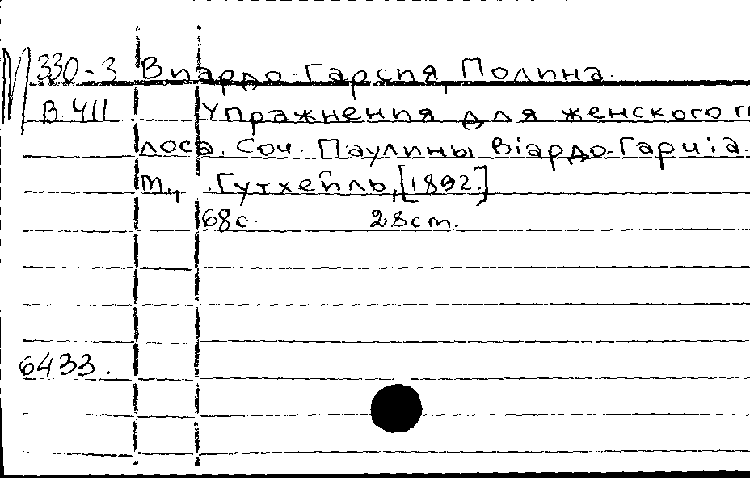 М 330-3 Виардо-Гарсия, Полина.
В 411 Упражнения для женского го
лоса. Соч. Паулины Віардо-Гарціа.
М., Гутхейль, [1892.]
68с. 28ст.
6433.